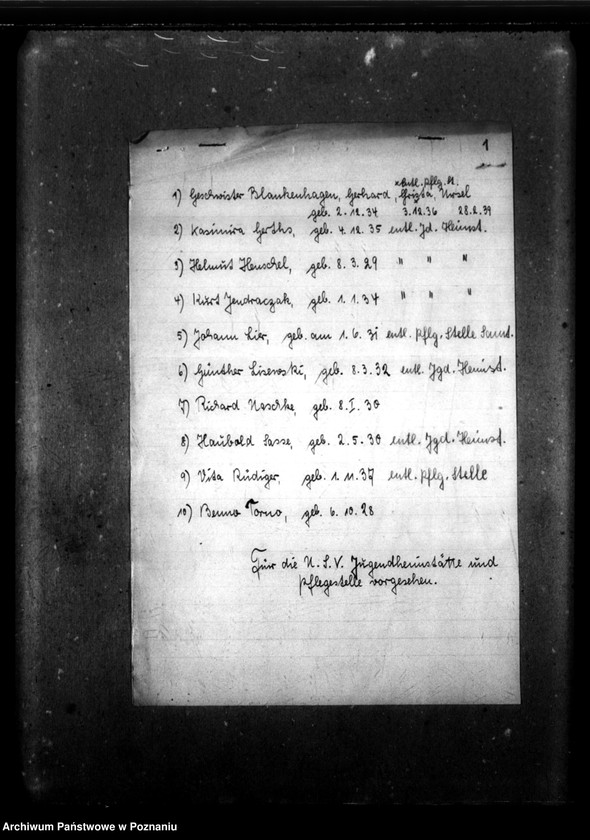 1
entl. Pflg. St.
1) Geschwister Blankenhagen, Gerhard, Christa, Ursel
geb. 2.12.34 3.12.36 28.2.39
2) Kasimira Gerths, geb. 4.12.35 entl. Jd. Heimst.
3) Helmut Henschel, geb. 8.3.29 " " "
4) Kurt Jendraczak, geb. 1.1.34 " " "
5) Johann Lier, geb. am 1.6.31 entl. Pflg. Stelle
6) Günther Lisewski, geb. 8.3.32 entl. Jgd. Heimst.
7) Richard Naschke, geb. 8.I.30
8) Haubold Sasse, geb. 2.5.30 entl. Jgd. Heimst.
9) Vita Rüdiger, geb. 1.11.37 entl. Pflg. Stelle
10) Benno Torno, geb. 6.10.28
Für die N.S.V. Jugendheimstätte und
Pflegestelle vorgesehen.
Archiwum Państwowe w Poznaniu